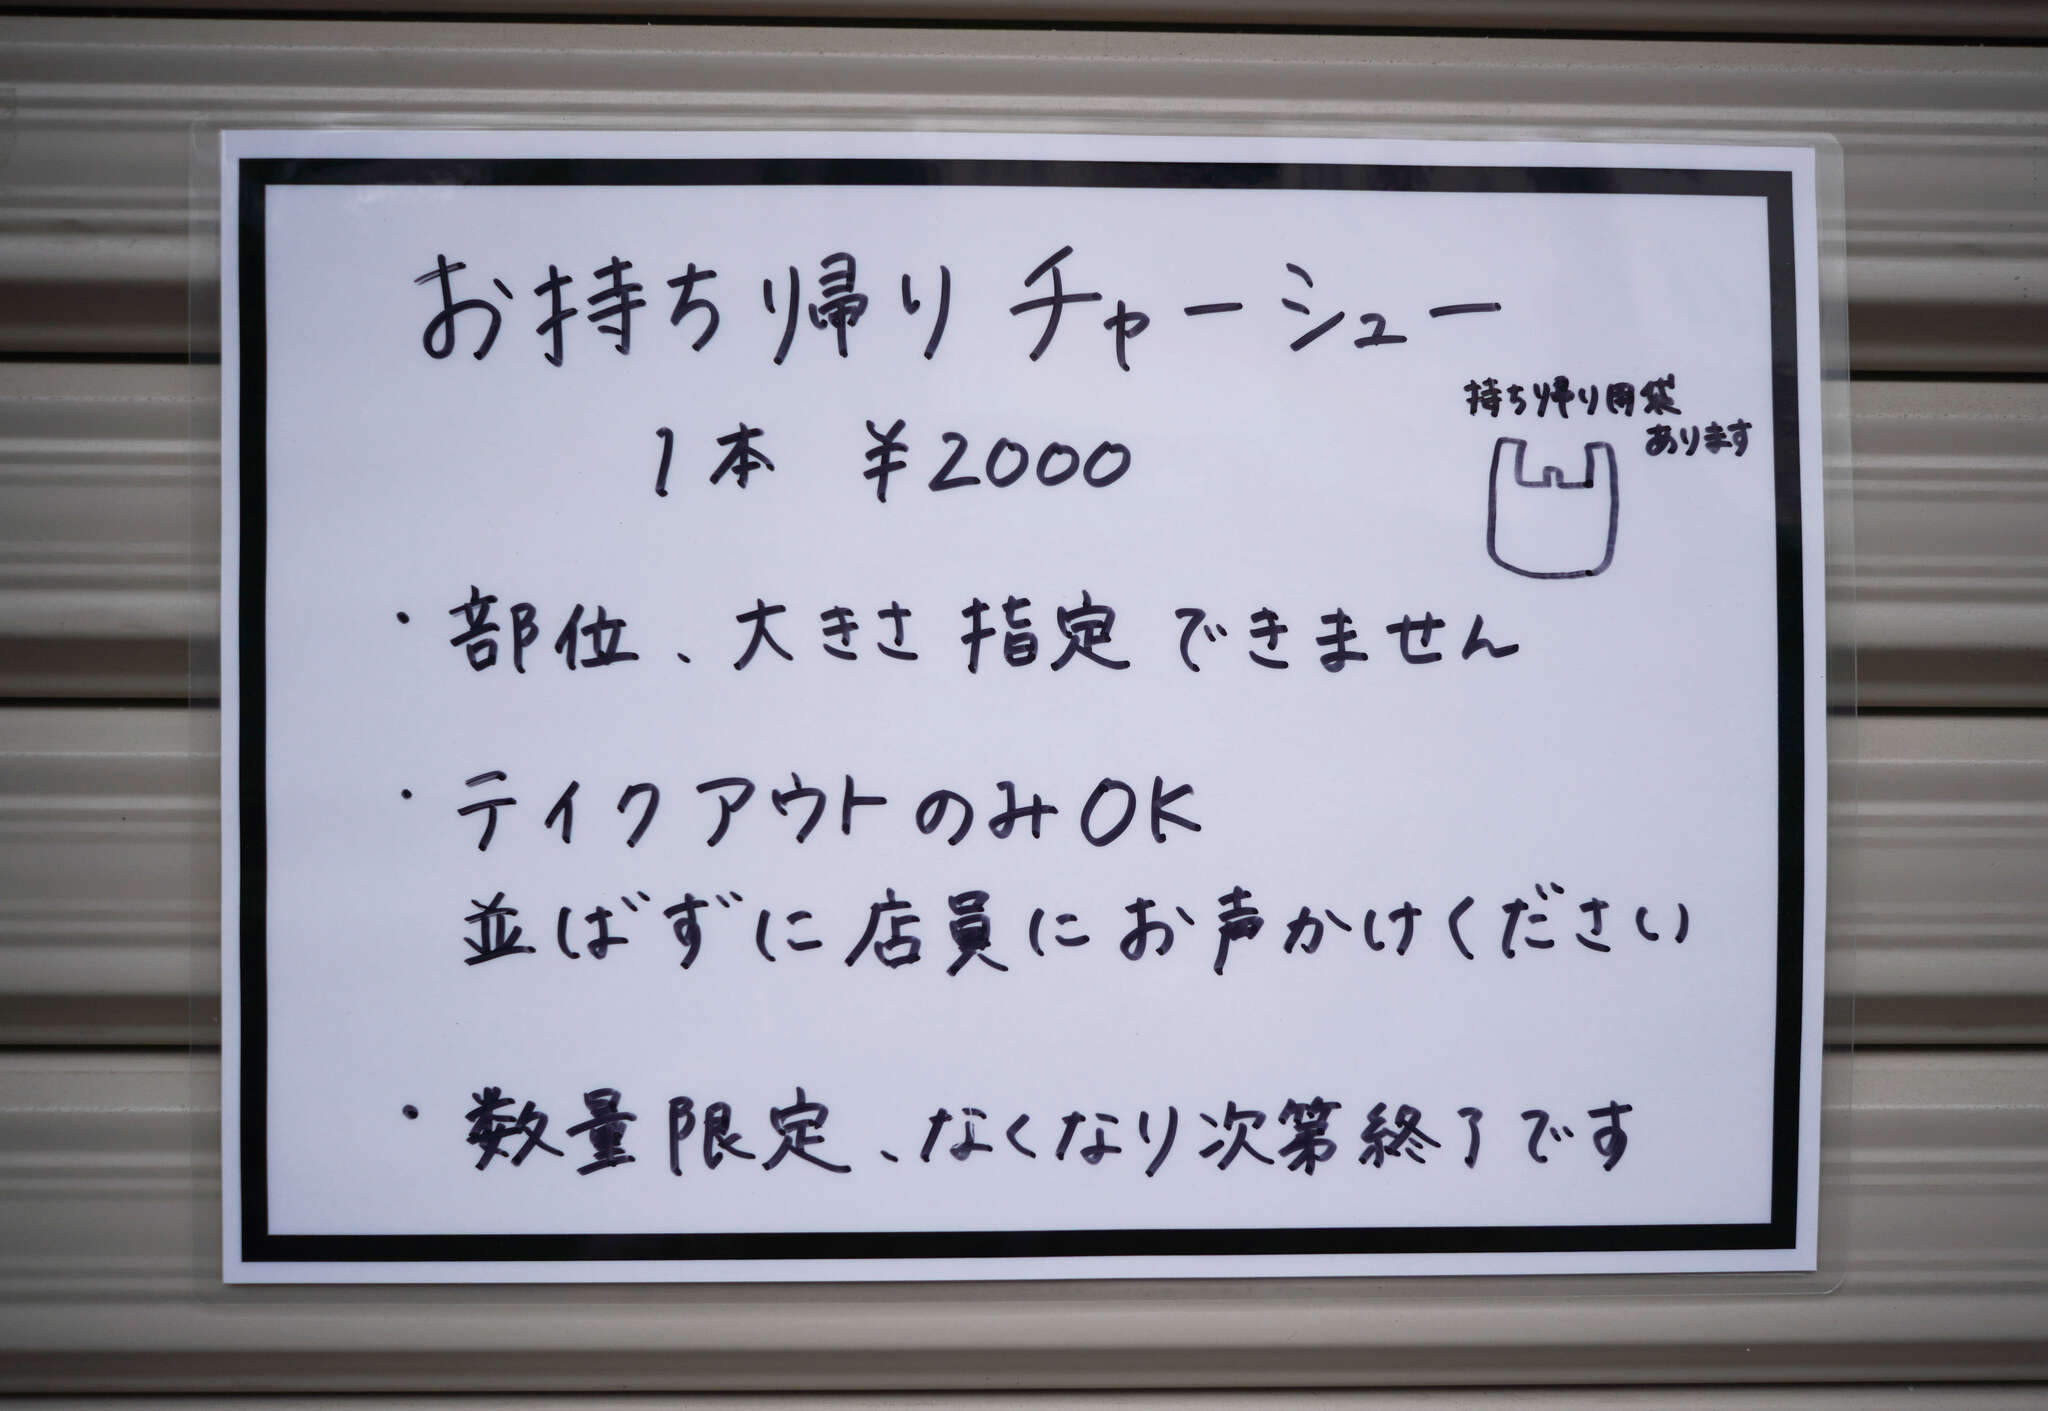 お持ち帰り チャーシュー
持ち帰り用袋
あります
1本 ¥2000
・部位、大きさ 指定 できません
・テイクアウトのみOK
並ばずに店員にお声かけください
・数量限定、なくなり次第終了です